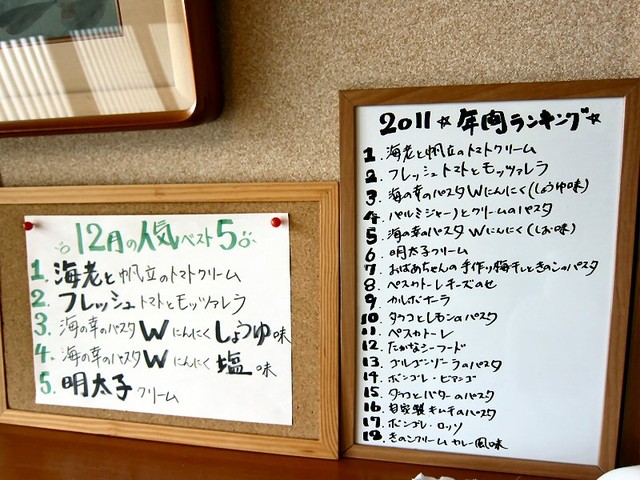 12月の人気ベスト5
1. 海老と帆立のトマトクリーム
2. フレッシュトマトとモッツァレラ
3. 海の幸のパスタWにんにくしょうゆ味
4. 海の幸のパスタWにんにく塩味
5. 明太子クリーム
2011☆年間ランキング☆
1. 海老と帆立のトマトクリーム
2. フレッシュトマトとモッツァレラ
3. 海の幸のパスタWにんにく(しょうゆ味)
4. パルミジャーノとクリームのパスタ
5. 海の幸のパスタWにんにく(しお味)
6. 明太子クリーム
7. おばあちゃんの手作り梅干しときのこのパスタ
8. ペスカトーレチーズのせ
9. カルボナーラ
10. タラコとレモンのパスタ
11. ペスカトーレ
12. たかなシーフード
13. ゴルゴンゾーラのパスタ
14. ボンゴレ・ビアンコ
15. タラコとバターのパスタ
16. 自家製キムチのパスタ
17. ボンゴレ・ロッソ
18. きのこクリームカレー風味